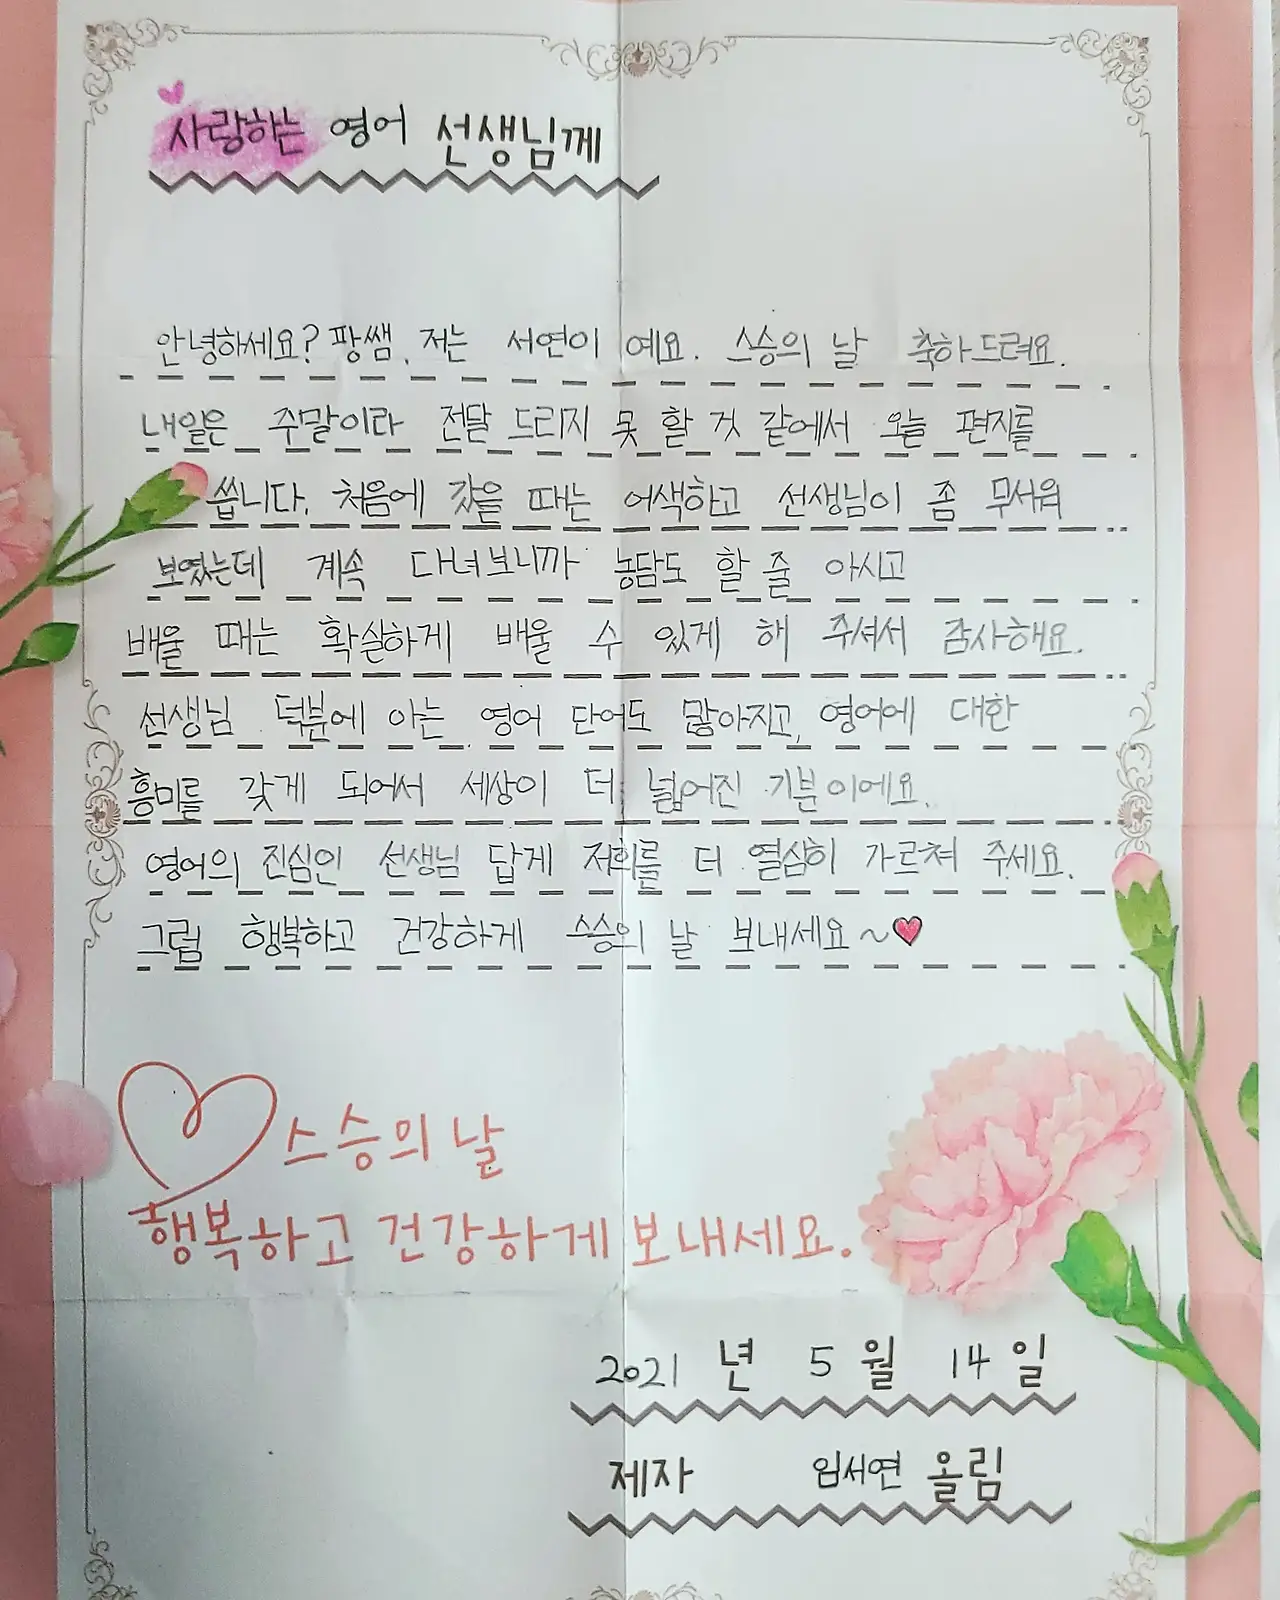 사랑하는 영어 선생님께
안녕하세요? 팡쌤. 저는 서연이 예요. 스승의 날 축하드려요.
내일은 주말이라 전달 드리지 못 할 것 같에서 오늘 편지를
씁니다. 처음에 갔을 때는 어색하고 선생님이 좀 무서워
보였는데 계속 다녀보니까 농담도 할 줄 아시고
배울 때는 확실하게 배울 수 있게 해 주셔서 감사해요.
선생님 덕분에 아는 영어 단어도 많아지고, 영어에 대한
흥미를 갖게 되어서 세상이 더 넓어진 기분이에요.
영어의 진심인 선생님 답게 저희를 더 열심히 가르쳐 주세요.
그럼 행복하고 건강하게 스승의 날 보내세요~♥
스승의 날
행복하고 건강하게 보내세요.
2021 년 5 월 14 일
제자 임서연 올림